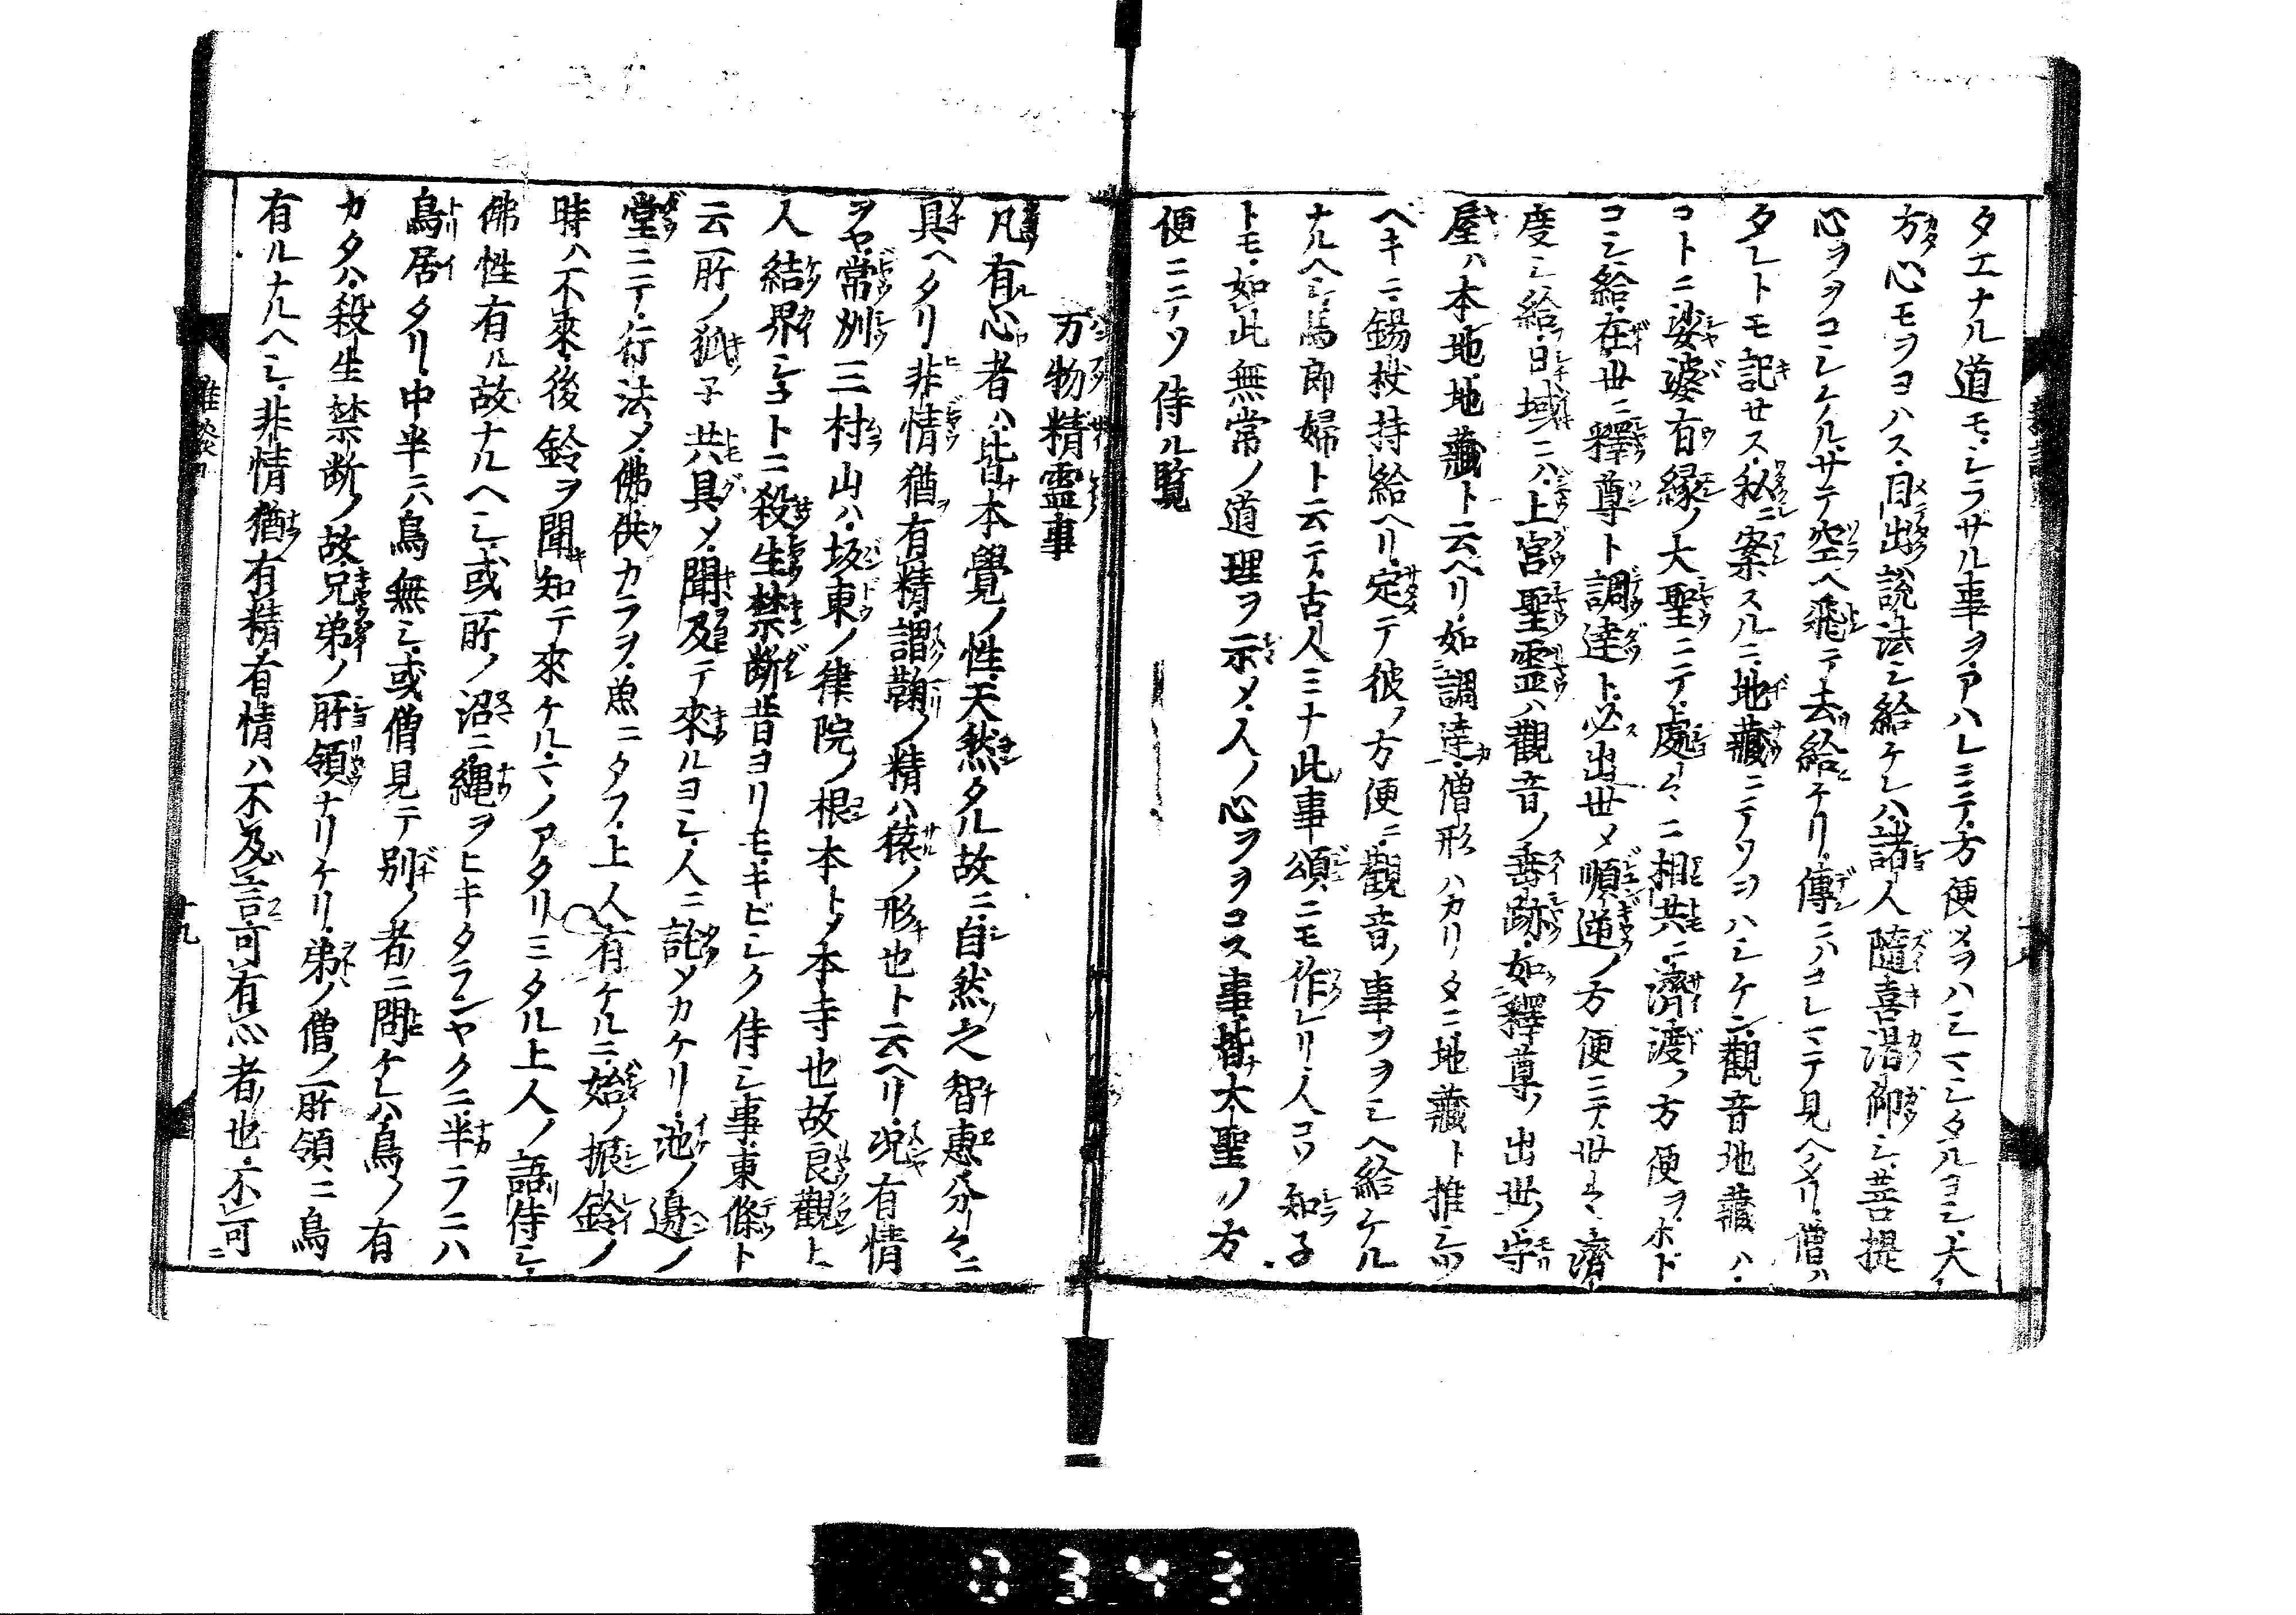 タエナル道モ・シラザル事ヲ・アハレミテ・方便メラハシマシタルヨシ・大
方心モヲヨハス・目出説法シ給ケレハ・諸人隨喜渇仰シ・菩提
心ヲヲコシケル・サテ空ヘ飛テ去給ケリ・傳ニハコレマテ見ヘタリ・僧ハ
タレトモ記セス・私ニ案スルニ・地藏ニテヲハシケン・觀音地藏ハ・
コトニ娑婆有縁ノ大聖ニテ・處々ニ相共ニ濟渡ノ方便ヲ・ホド
コシ給・在世ニ釋尊ト調達ト・必出世メ順逆ノ方便ニテ・世々濟
度シ給・日域ニハ・上宮聖霊ハ觀音ノ垂跡・如釋尊ノ出世ノ・守
屋ハ本地地藏ト云ヘリ・如調達・僧形ハカリタニ地藏ト推シツ
ベキニ・錫杖持給ヘリ・定テ彼ノ方便ニ・觀音ノ事ヲヲシヘ給ケル
ナルヘシ・馬郎婦ト云テ・古人ミナ此事頌ニモ作レリ・人コソ知子
トモ・如此無常ノ道理ヲ示メ・人ノ心ヲヲコス事・皆大聖ノ方
便ニテソ侍ル覽
万物精霊事
凡有心者ハ・皆本覺ノ性・天然タル故ニ・自然之智惠・分々ニ
具ヘタリ・非情猶有精・謂鞠ノ精ハ猿ノ形也ト云ヘリ・况有情
ヲヤ・常州三村山ハ・坂東ノ律院ノ根本トメ本寺也・故良觀上
人結界シコトニ殺生禁断・昔ヨリモ・キビシク侍シ事・東條ト
云所ノ狐子共具メ・聞及テ來ルヨシ・人ニ託メカケリ・池ノ邊ノ
堂ニテ・行法メ・佛供カラヲ・魚ニタフ・上人有ケルニ・始ノ振鈴ノ
時ハ不來・後鈴ヲ聞知テ來ケル・マノアタリミタル上人ノ語侍シ・
佛性有ル故ナルヘシ・或所ノ沼ニ・縄ヲヒキタランヤクニ・半ラニハ
鳥居タリ・中半ニハ鳥無シ・或僧見テ別ノ者ニ問ケレハ鳥ノ有
カタハ・殺生禁断ノ故・兄弟ノ所領ナリケリ・弟ノ僧ノ所領ニ鳥
有ルナルヘシ・非情猶有精・有情ハ不及言可有心者也・不可
雜談
十九
0343